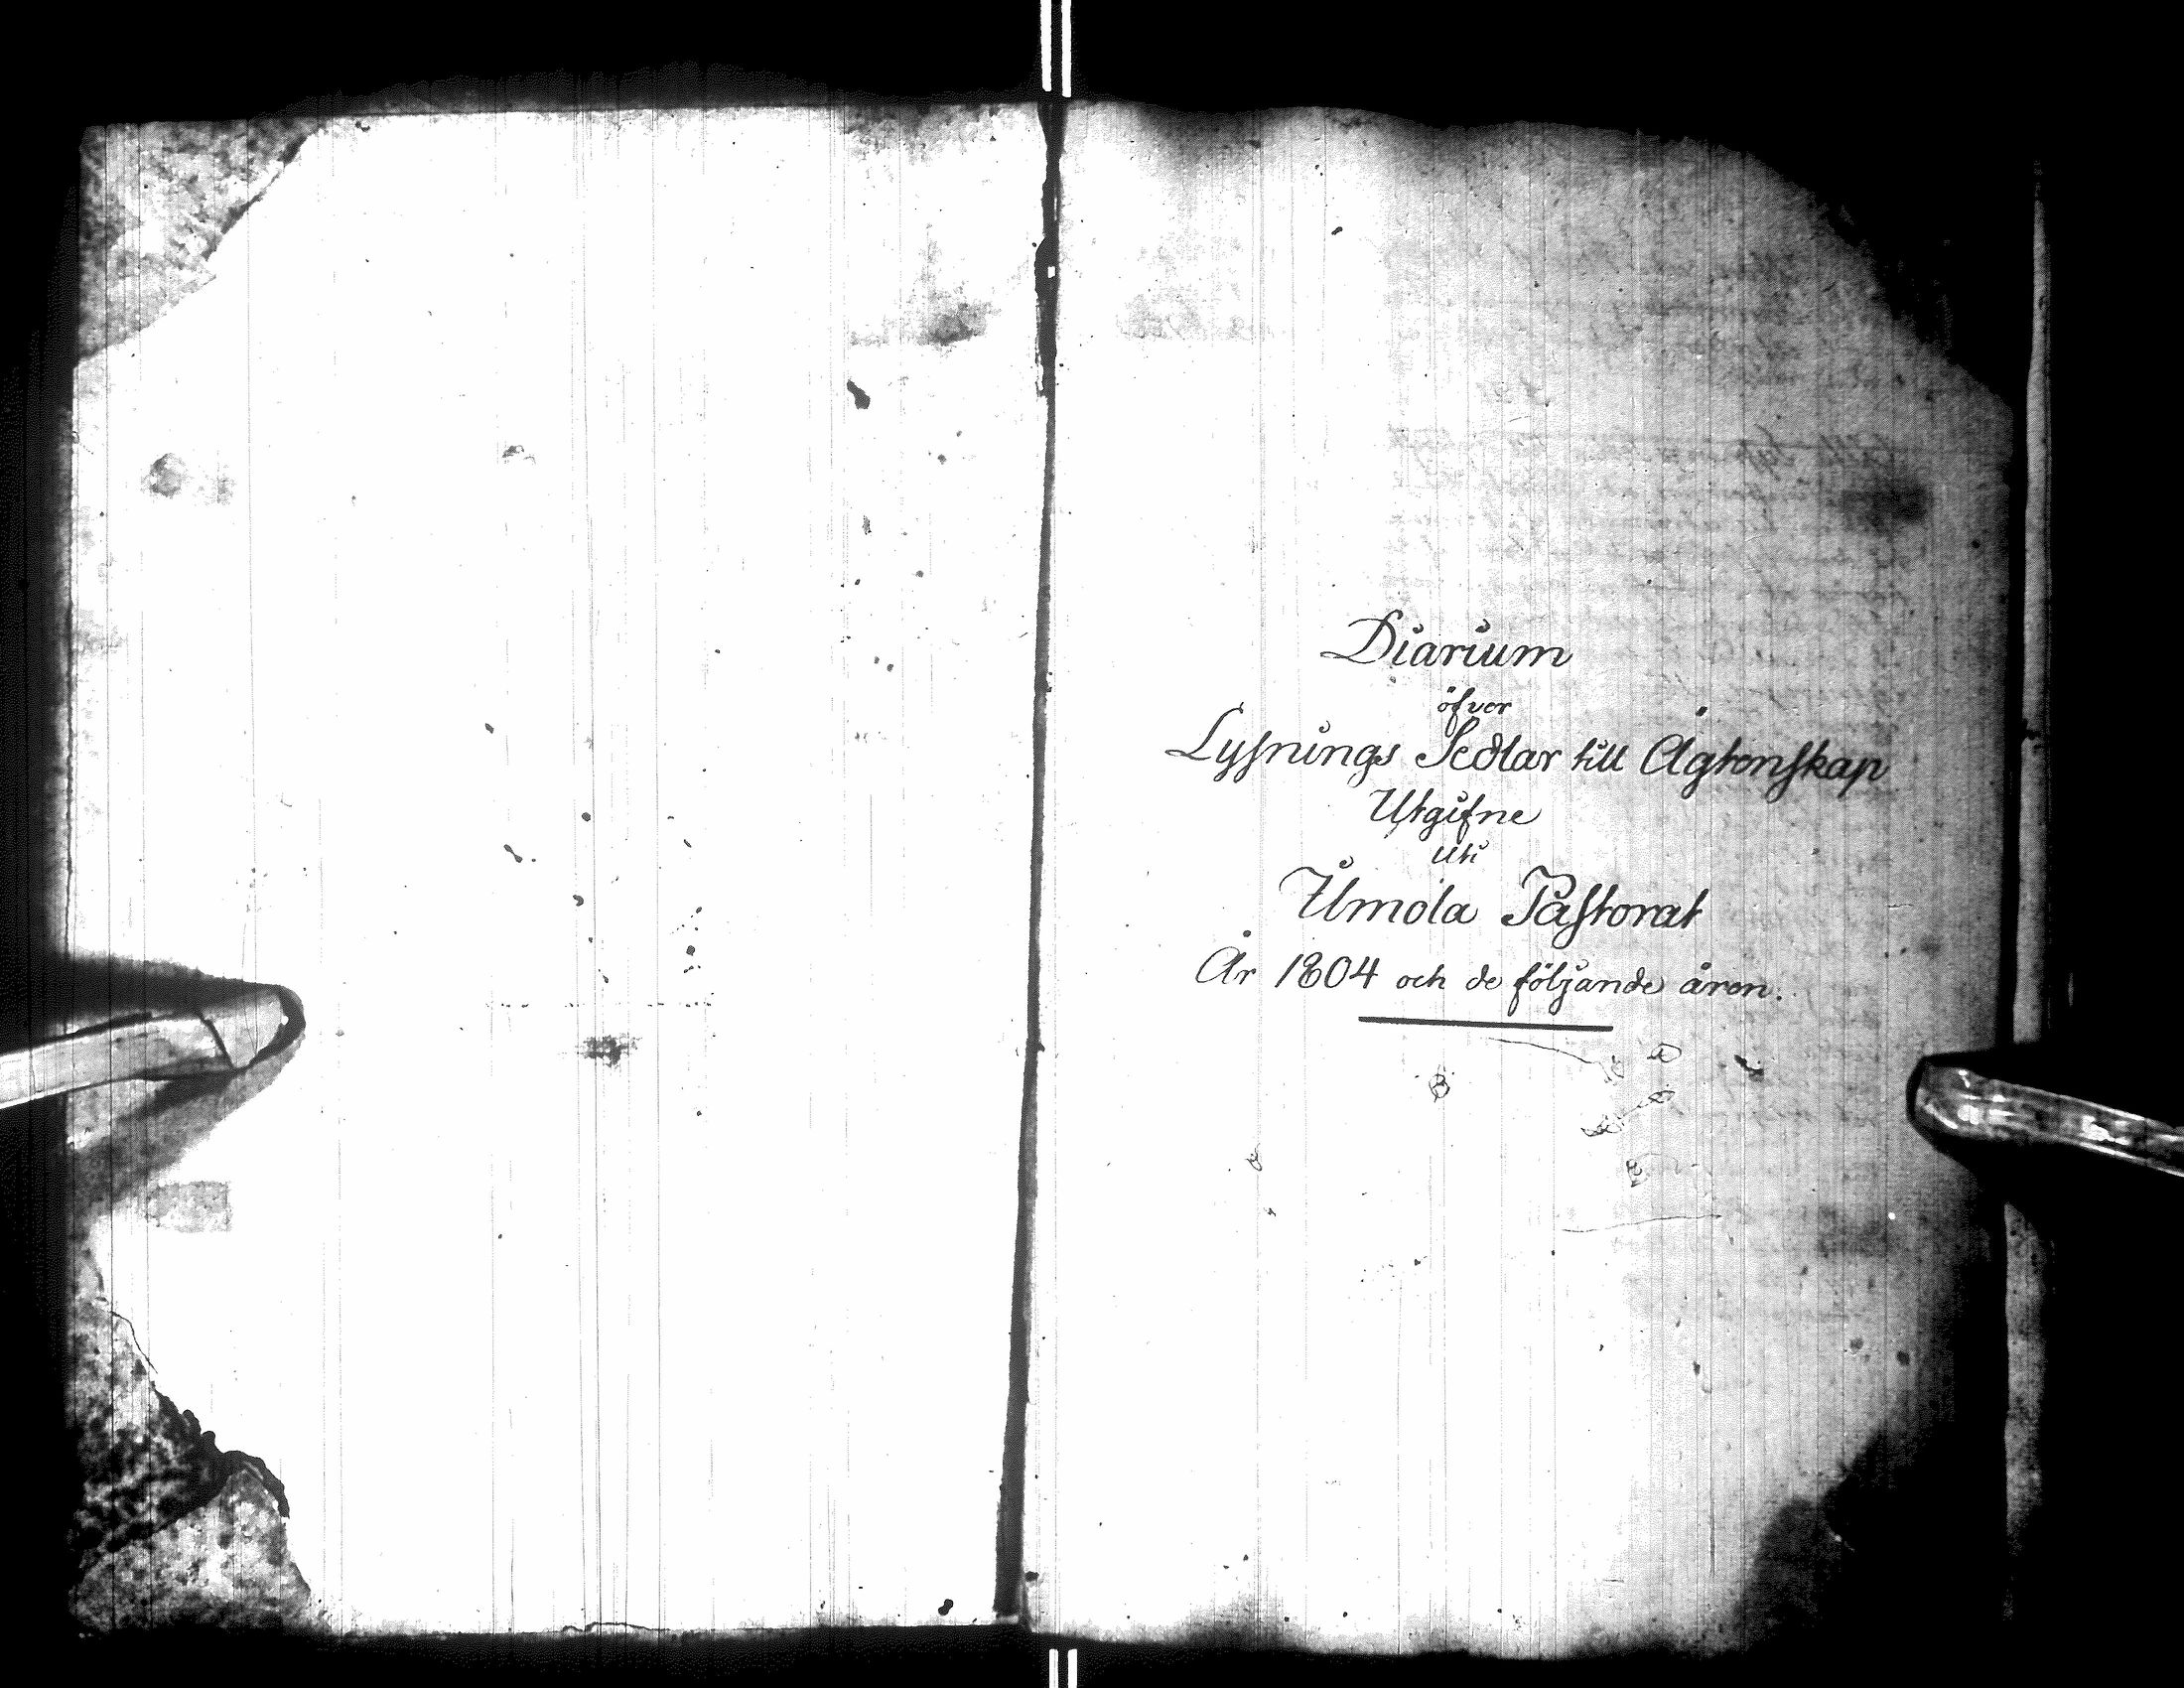 Diarium
öfver
Lysnings Sedlar till Ägtenskap
Utgifne
uti
Umola Pastorat
År 1804 och de följande åren.